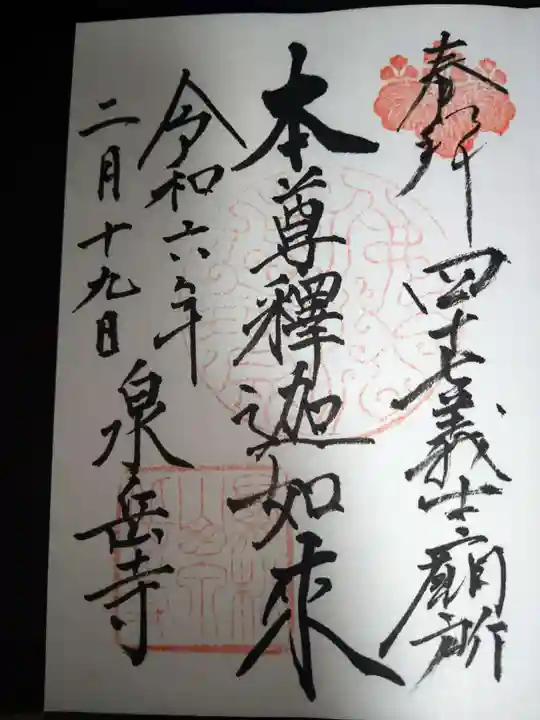 奉拝
四十七義士廟所
本尊釋迦如来
令和六年
二月十九日
泉岳寺